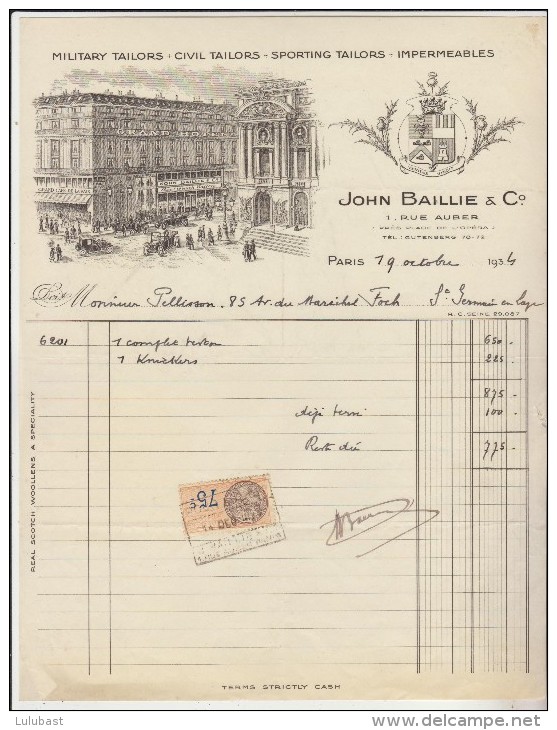 MILITARY TAILORS · CIVIL TAILORS · SPORTING TAILORS · IMPERMEABLES
GRAND
JOHN BAILLIE & Co
JOHN BAILLIE & Co
1, RUE AUBER
(PRÈS PLACE DE L'OPÉRA)
TÉL: GUTENBERG 70-72
PARIS 19 octobre 1934
Doit Monsieur Pellisson. 85 Av. du Maréchal Foch St Germain en Laye
R.C. SEINE 29.087
6201 1 complet veston 650 -
1 Knickers 225 -
875 -
déjà versé 100 -
Reste dû 775 -
REAL SCOTCH WOOLLENS A SPECIALITY
75c
TERMS STRICTLY CASH
Lulubast
http://www.delcampe.net